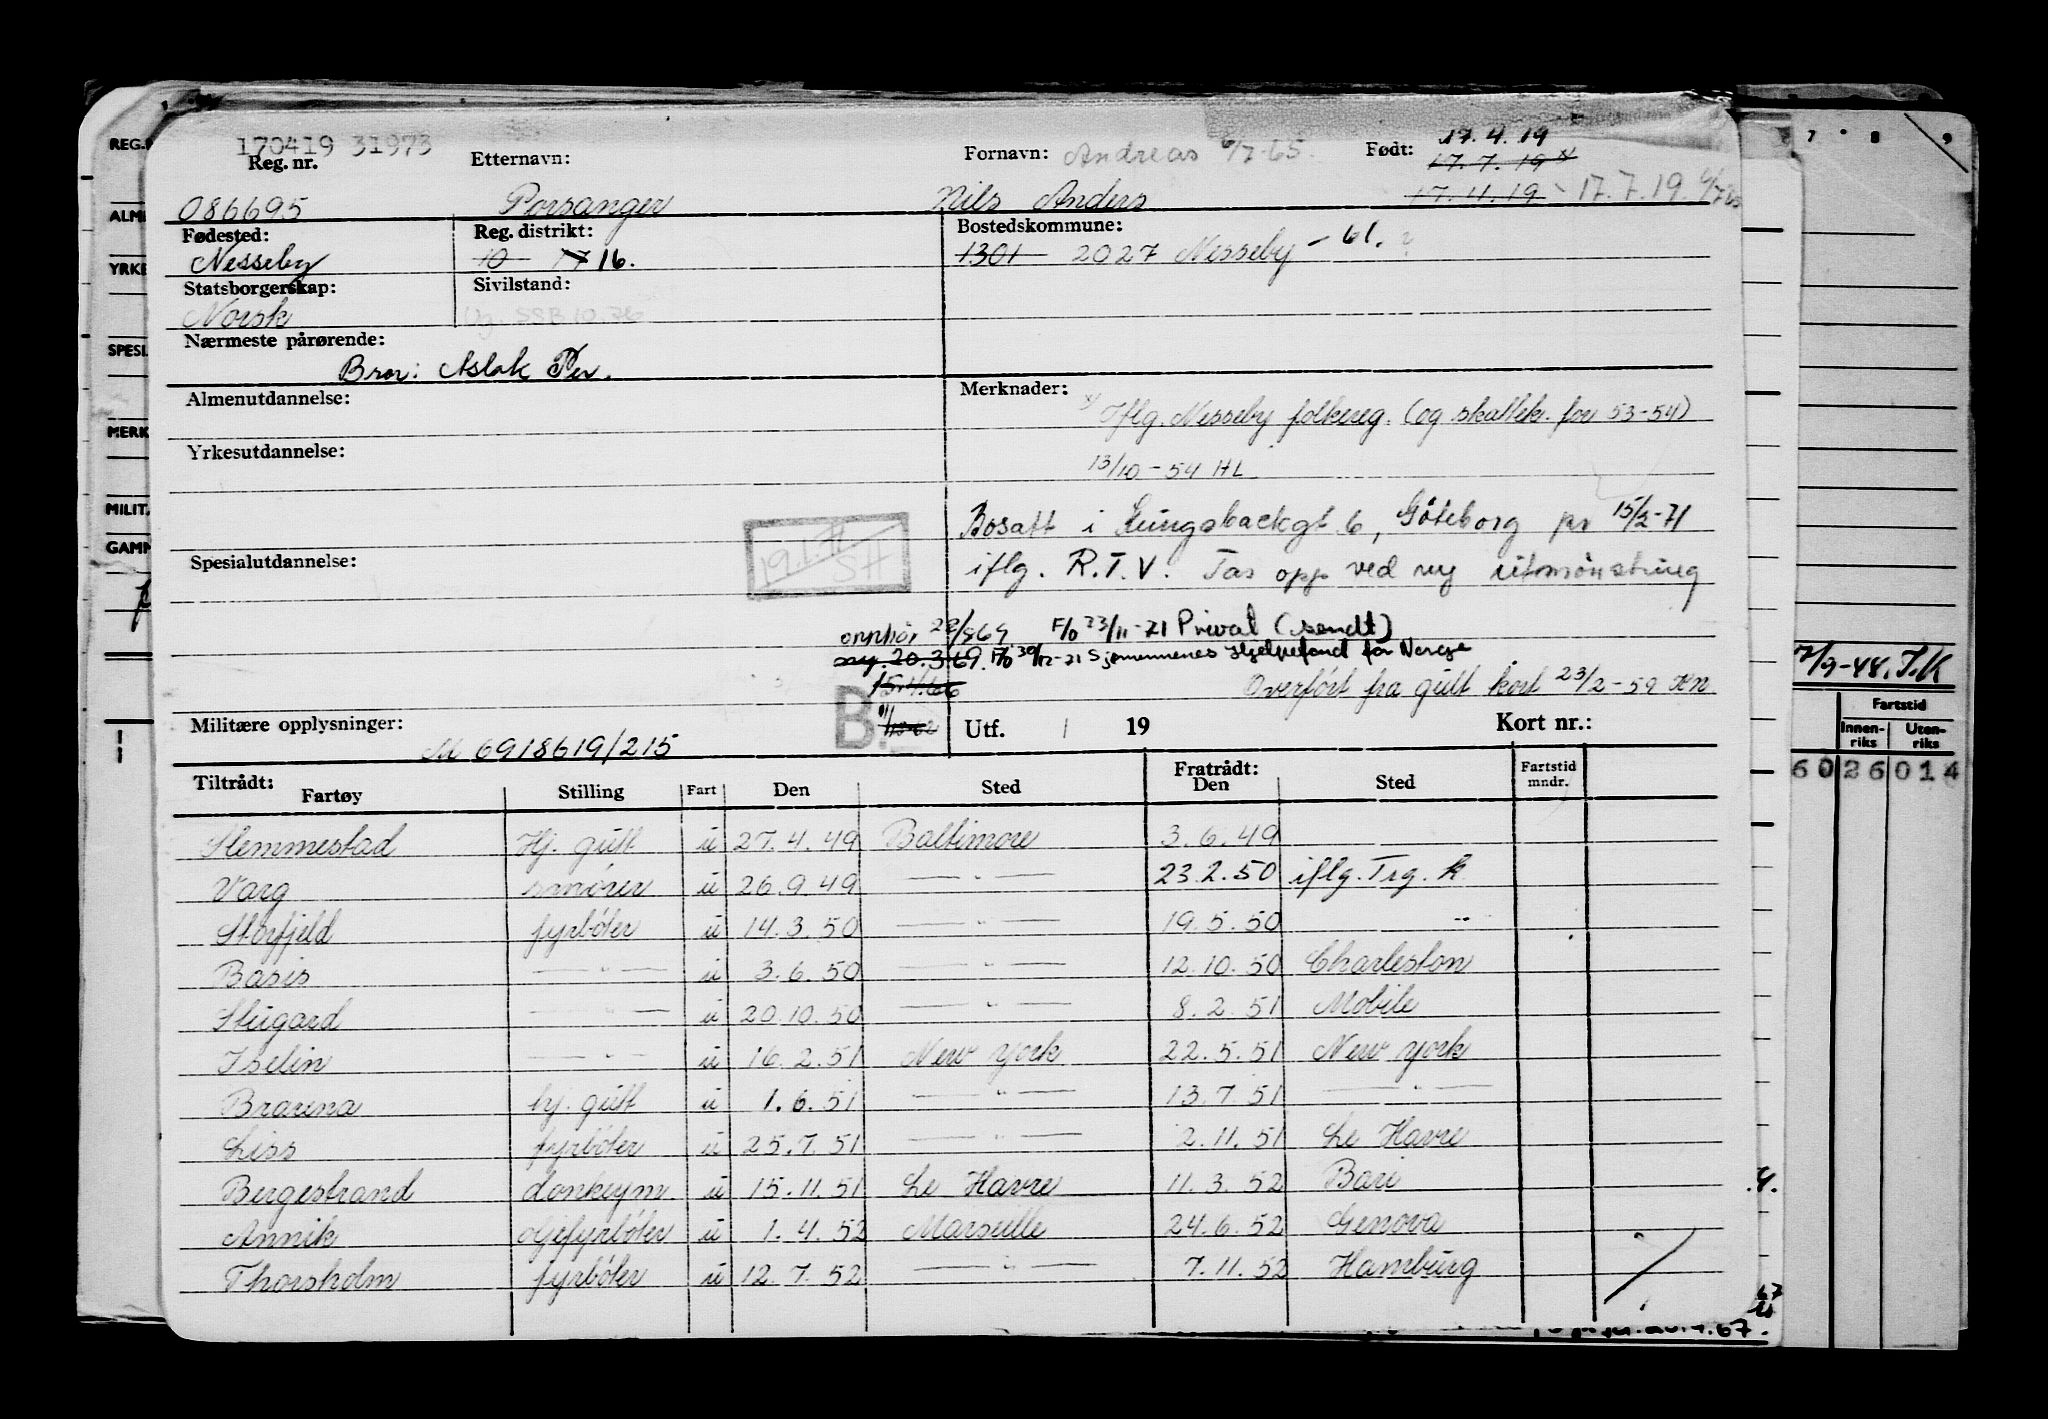 170419 31973
Reg. nr.
Etternavn:
Fornavn: Andreas 6/7-65.
Født: 17.4.19
17.7.19 x
086695
Porsanger
Nils Anders
17.11.19 - 17.7.19 6/7 65
Fødested:
Reg. distrikt:
Bostedskommune:
Nesseby
10 16.
1301 2027 Nesseby - 61. ?
Statsborgerskap:
Sivilstand:
Norsk
Ug. SSB 10.76
Nærmeste pårørende:
Bror: Aslak Per.
Almenutdannelse:
Merknader:
x) Iflg. Nesseby folkereg. (og skattek. for 53-54)
Yrkesutdannelse:
13/10-54 HL
Bosatt i Kungsbackgt 6, Göteborg pr 15/2-71
Spesialutdannelse:
19.1.71 SH
iflg. R.T.V. Tas opp ved ny utmønstring
opphør 22/569 F/o 23/11-71 Privat (sendt)
ny. 20.3.69. F/o 30/12-71 Sjømennenes Hjelpefond for Norge
15.4.66
Overført fra gult kort 23/2-59
B.
Militære opplysninger:
M 6918619/215
Utf. / 19
Kort nr.:
Tiltrådt:
Fartøy Stilling Fart Den Sted
Fratrådt:
Den Sted
Fartstid mndr.
Slemmestad Hj. gutt u 27.4.49 Baltimore 3.6.49
Varg smører u 26.9.49 — " — 23.2.50 iflg. Trg. k
Storfjeld fyrbøter u 14.3.50 — " — 19.5.50 "
Basis — " — u 3.6.50 — " — 12.10.50 Charleston
Stigard — " — u 20.10.50 — " — 8.2.51 Mobile
Iselin — " — u 16.2.51 New York 22.5.51 New York
Braena hj. gutt u 1.6.51 — " — 13.7.51 — " —
Liss fyrbøter u 25.7.51 — " — 2.11.51 Le Havre
Bergestrand donkeym. u 15.11.51 Le Havre 11.3.52 Bari
Annik oljefyrbøter u 1.4.52 Marseille 24.6.52 Genova
Thorsholm fyrbøter u 12.7.52 — " — 7.11.52 Hamburg
REG.
ALM
YRKE
SPESI.
MERK
MILIT.
GAMM
7 8 9
12/9-48. J.K
Fartstid
Innen-riks Uten-riks
60 26 014